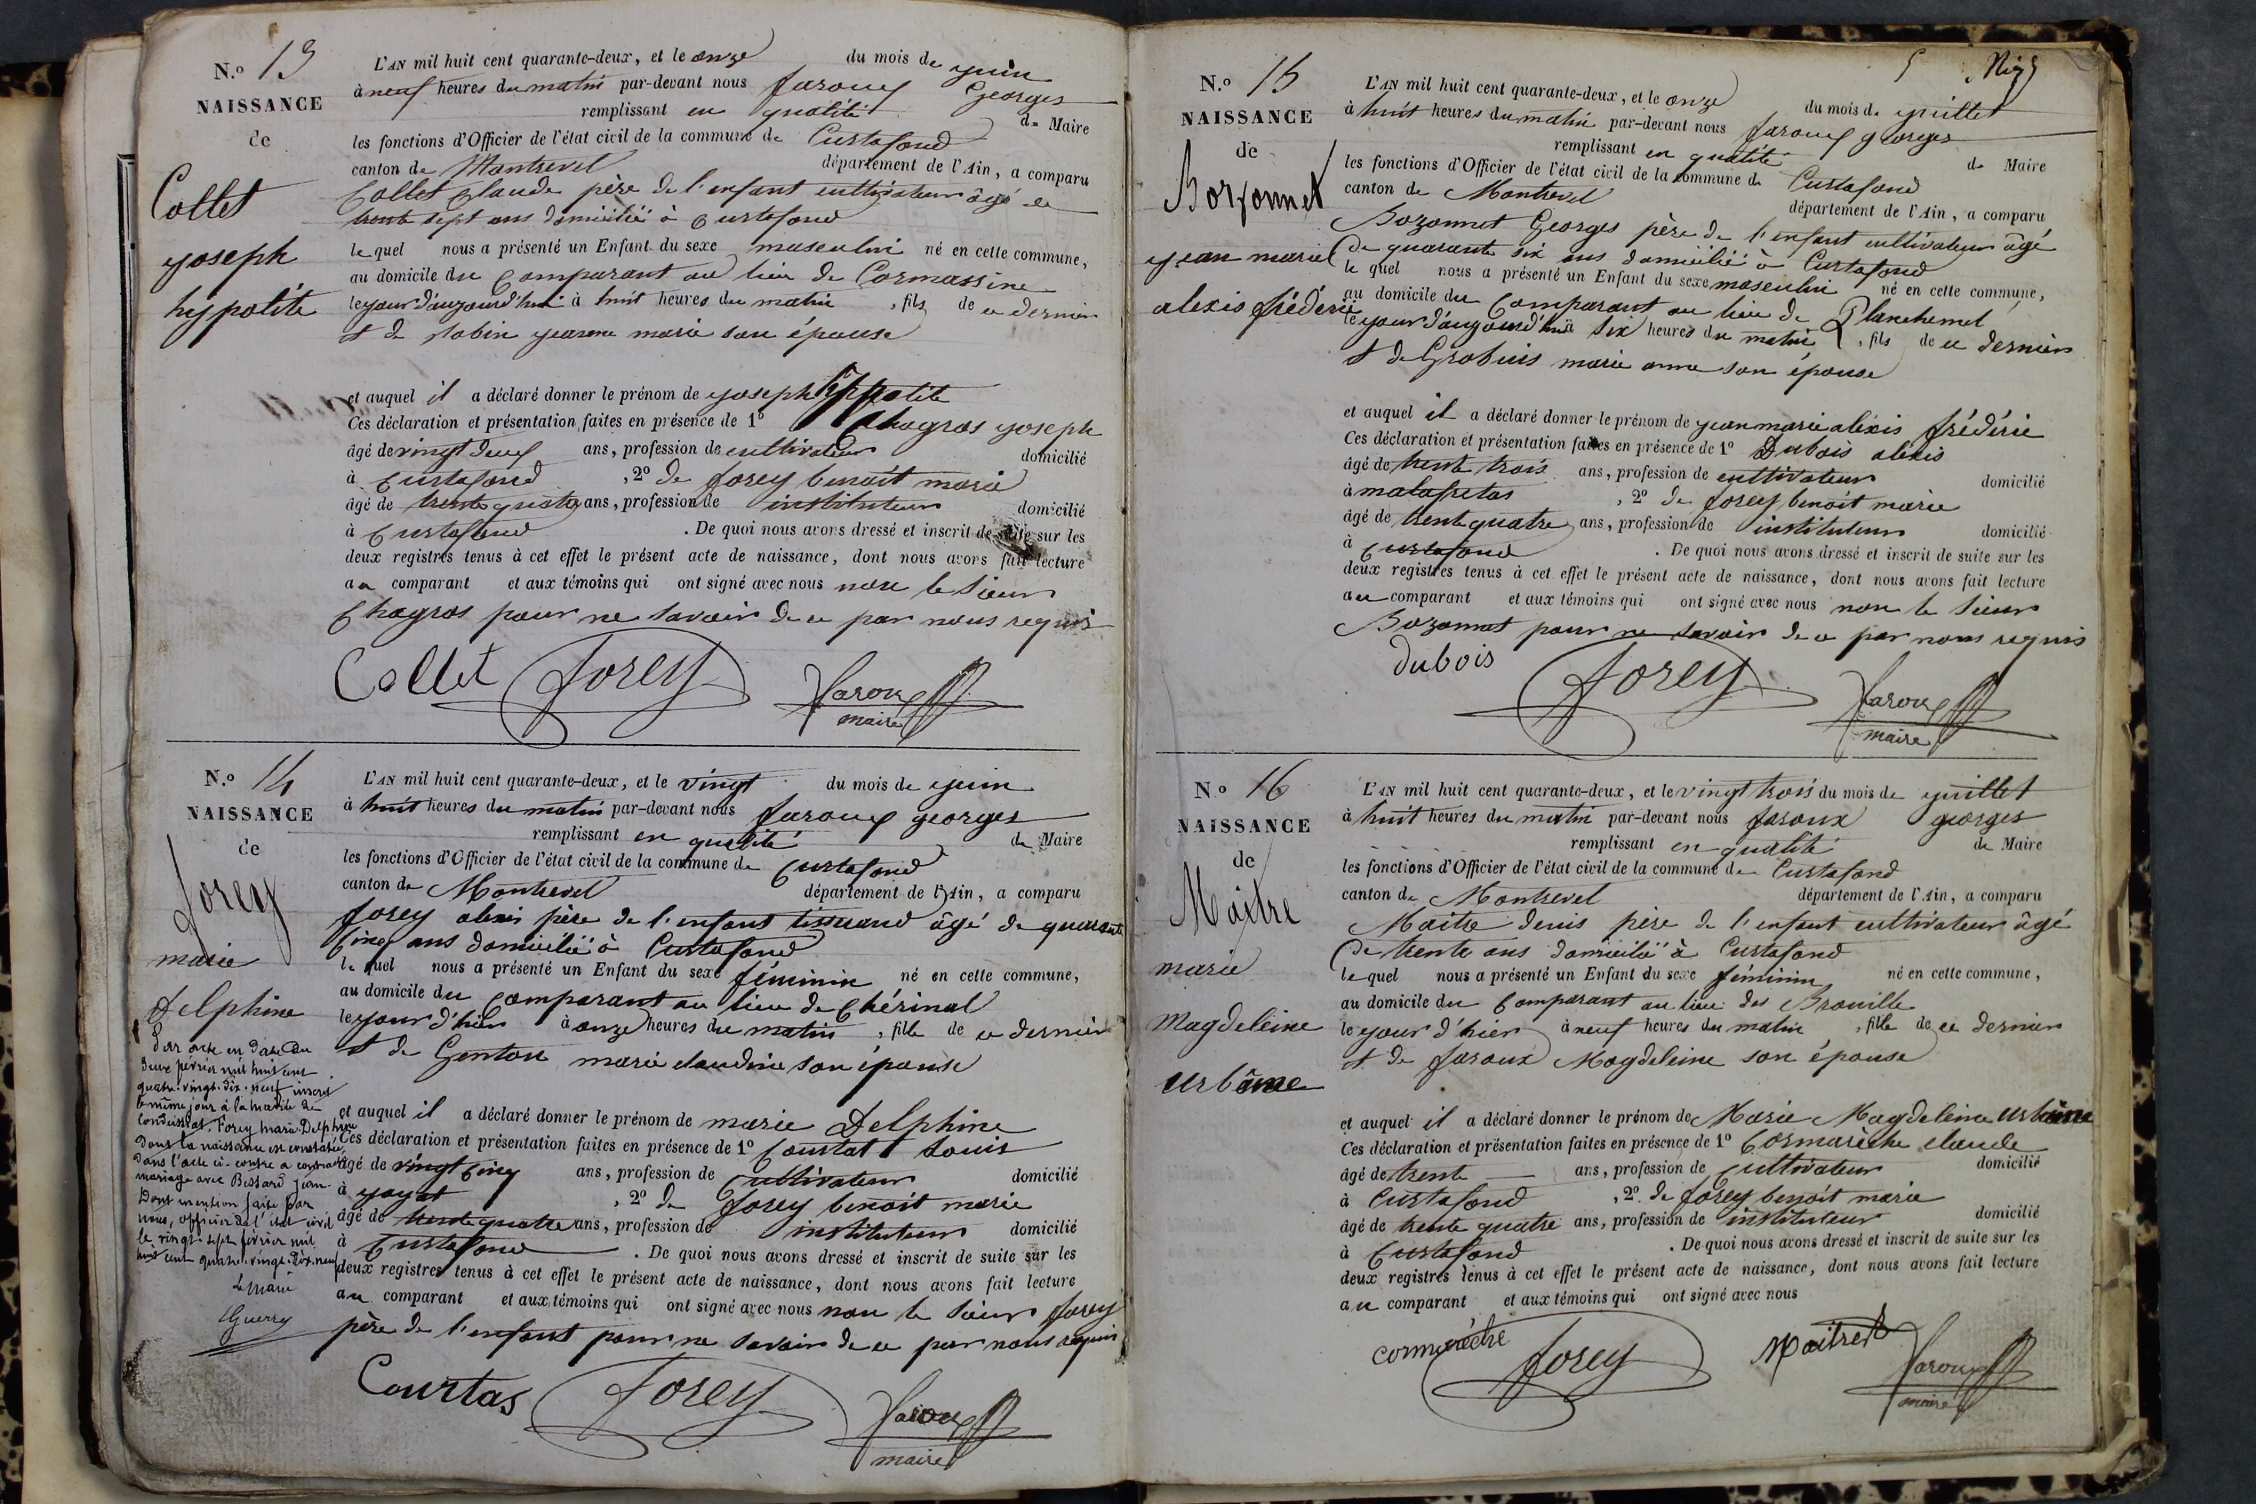 N.º 13
NAISSANCE
de
Collet
yoseph
hyppolite
L'AN mil huit cent quarante-deux, et le onze du mois de yuin
à neuf heures du matin par-devant nous faroux Georges
remplissant en qualité de Maire
les fonctions d'Officier de l'état civil de la commune de Curtafond
canton de Montrevel département de l'Ain, a comparu
Collet Claude père de l'enfant cultivateur âgé de
trente sept ans domicilié à Curtafond
le quel nous a présenté un Enfant du sexe masculin né en cette commune,
au domicile du Comparant au lieu de Cormassine
le your d'auyourd'hui à huit heures du matin , fils de ce dernier
et de robin yeanne marie son épouse
et auquel il a déclaré donner le prénom de yoseph hyppolite
Ces déclaration et présentation faites en présence de 1º Chagros yoseph
âgé de vingt deux ans, profession de cultivateur domicilié
à Curtafond , 2º de forey benoît marie
âgé de trente quatre ans, profession de instituteur domicilié
à Curtafond . De quoi nous avons dressé et inscrit de suite sur les
deux registres tenus à cet effet le présent acte de naissance, dont nous avons fait lecture
au comparant et aux témoins qui ont signé avec nous non le sieur
Chagros pour ne savoir de ce par nous requis
Collet forey faroux
maire
N.º 14
NAISSANCE
de
forey
marie
Delphine
Par acte en date du
deux février mil huit cent
quatre-vingt-dix-neuf inscrit
le même jour à la mairie de
Confrançon, Forey Marie Delphine
dont la naissance est constatée
dans l'acte ci-contre a contracté
mariage avec Bessard Jean.
Dont mention faite par
nous, officier de l'état civil
le vingt-sept février mil
huit cent quatre-vingt-dix-neuf
Le Maire
Guerry
L'AN mil huit cent quarante-deux, et le vingt du mois de yuin
à huit heures du matin par-devant nous faroux georges
remplissant en qualité de Maire
les fonctions d'Officier de l'état civil de la commune de Curtafond
canton de Montrevel département de l'Ain, a comparu
forey alexis père de l'enfant tisserand âgé de quarante
cinq ans domicilié à Curtafond
le quel nous a présenté un Enfant du sexe féminin né en cette commune,
au domicile du Comparant au lieu de Chérinal
le your d'hier à onze heures du matin , fille de ce dernier
et de Genton marie claudine son épouse
et auquel il a déclaré donner le prénom de marie Delphine
Ces déclaration et présentation faites en présence de 1º Courtat Louis
âgé de vingt cinq ans, profession de cultivateur domicilié
à yayat , 2º de forey benoit marie
âgé de trente quatre ans, profession de instituteur domicilié
à Curtafond . De quoi nous avons dressé et inscrit de suite sur les
deux registres tenus à cet effet le présent acte de naissance, dont nous avons fait lecture
au comparant et aux témoins qui ont signé avec nous non le sieur forey
père de l'enfant pour ne savoir de ce par nous requis
Courtas forey faroux
maire
N.º 15
NAISSANCE
de
Bozonnet
yean marie
alexis frédéric
L'AN mil huit cent quarante-deux, et le onze du mois de yuillet
à huit heures du matin par-devant nous faroux georges
remplissant en qualité de Maire
les fonctions d'Officier de l'état civil de la commune de Curtafond
canton de Montrevel département de l'Ain, a comparu
Bozonnet Georges père de l'enfant cultivateur âgé
de quarante six ans domicilié à Curtafond
le quel nous a présenté un Enfant du sexe masculin né en cette commune,
au domicile du Comparant au lieu de Planchemel
le your d'auyourd'hui à six heures du matin , fils de ce dernier
et de Grobuis marie anne son épouse
et auquel il a déclaré donner le prénom de yean marie alexis frédéric
Ces déclaration et présentation faites en présence de 1º Dubois alexis
âgé de trente trois ans, profession de cultivateur domicilié
à malafretas , 2º de forey benoît marie
âgé de trente quatre ans, profession de instituteur domicilié
à Curtafond . De quoi nous avons dressé et inscrit de suite sur les
deux registres tenus à cet effet le présent acte de naissance, dont nous avons fait lecture
au comparant et aux témoins qui ont signé avec nous non le sieur
Bozonnet pour ne savoir de ce par nous requis
dubois forey faroux
maire
N.º 16
NAISSANCE
de
Maitre
marie
magdeleine
urbaine
L'AN mil huit cent quarante-deux, et le vingt trois du mois de yuillet
à huit heures du matin par-devant nous faroux georges
remplissant en qualité de Maire
les fonctions d'Officier de l'état civil de la commune de Curtafond
canton de Montrevel département de l'Ain, a comparu
Maitre denis père de l'enfant cultivateur âgé
de trente ans domicilié à Curtafond
le quel nous a présenté un Enfant du sexe féminin né en cette commune,
au domicile du Comparant au lieu des Brouille
le your d'hier à neuf heures du matin , fille de ce dernier
et de faroux Magdeleine son épouse
et auquel il a déclaré donner le prénom de Marie Magdeleine urbaine
Ces déclaration et présentation faites en présence de 1º Cormarèche claude
âgé de trente ans, profession de cultivateur domicilié
à Curtafond , 2º de forey benoit marie
âgé de trente quatre ans, profession de instituteur domicilié
à Curtafond . De quoi nous avons dressé et inscrit de suite sur les
deux registres tenus à cet effet le présent acte de naissance, dont nous avons fait lecture
au comparant et aux témoins qui ont signé avec nous
cormarèche forey Maitre faroux
maire